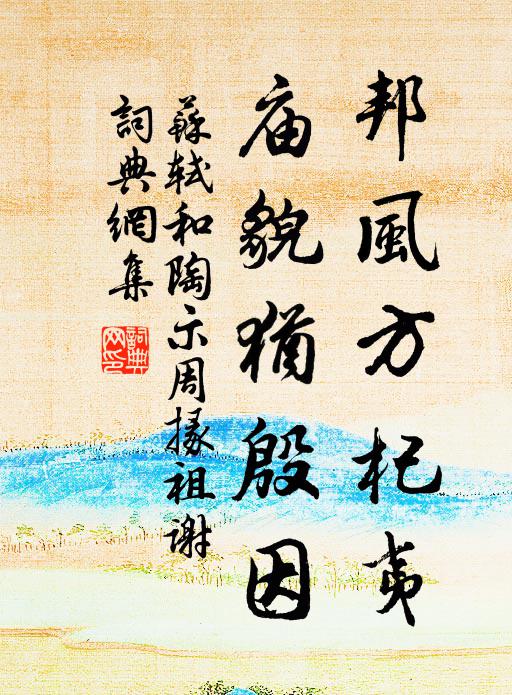 邦風方杞夷
庙貌猶殷因
蘇軾和陶示周掾祖謝
詞典網集
詞典网印